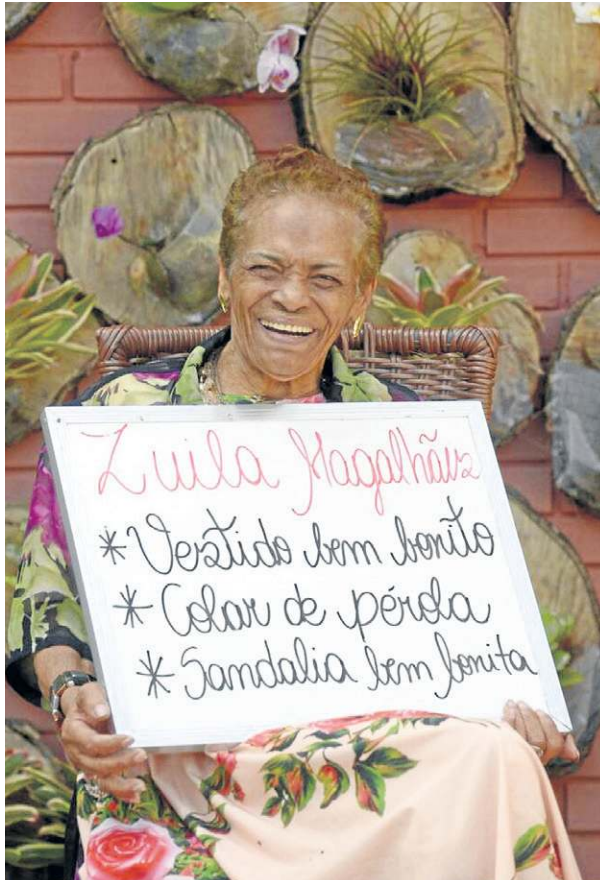 Zuila Magalhães
* Vestido bem bonito
* Colar de pérola
* Sandalia bem bonita